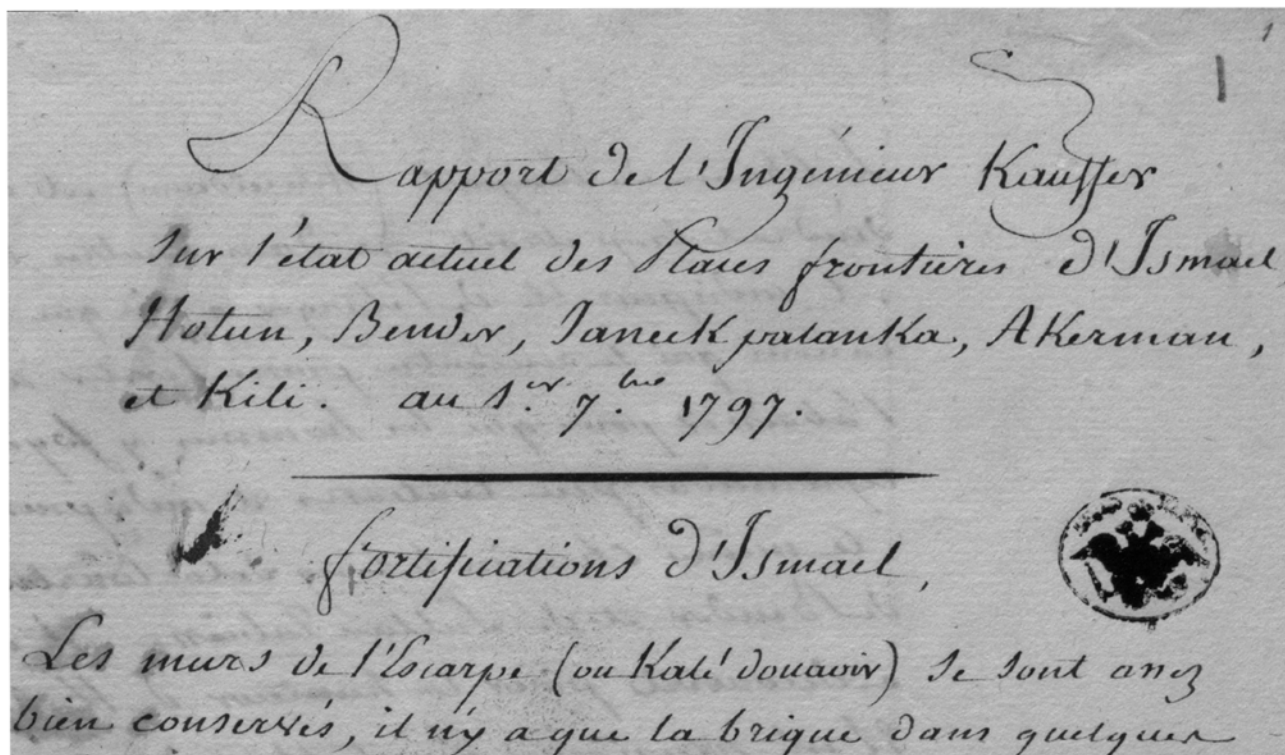 1
Rapport de l'Ingénieur Kauffer
sur l'état actuel des Places frontières d'Ismael,
Hotun, Bender, Janeck palanka, Akerman,
et Kili. au 1.er 7.bre 1797.
fortifications d'Ismael,
Les murs de l'Escarpe (ou Kalé douavir) se sont assez
bien conservés, il n'y a que la brique dans quelques